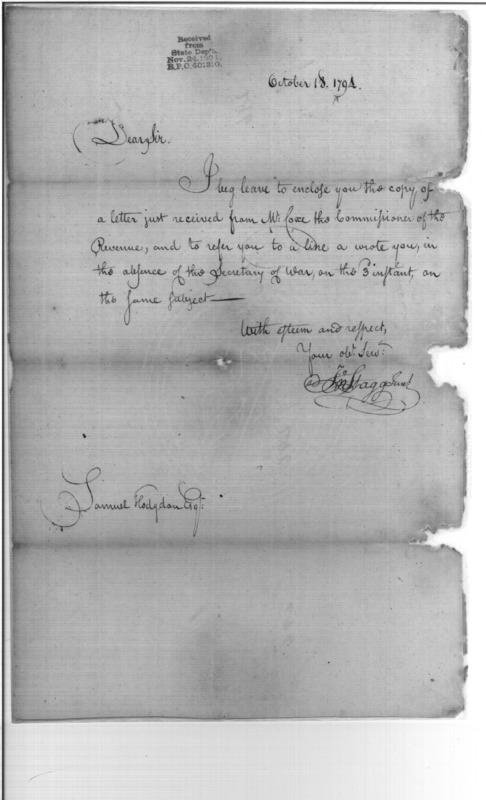 Received
from
State Dep't.
Nov. 24, 1921.
October 18. 1794.
Dear Sir.
I beg leave to enclose you the copy of
a letter just received from Mr. Coxe the Commissioner of the
Revenue, and to refer you to a line a wrote you, in
the absence of the Secretary of War, on the 3 instant, on
the same subject—
With esteem and respect,
Your obt. Servt.
Jno Stagg Junr
Samuel Hodgdon Esqr.